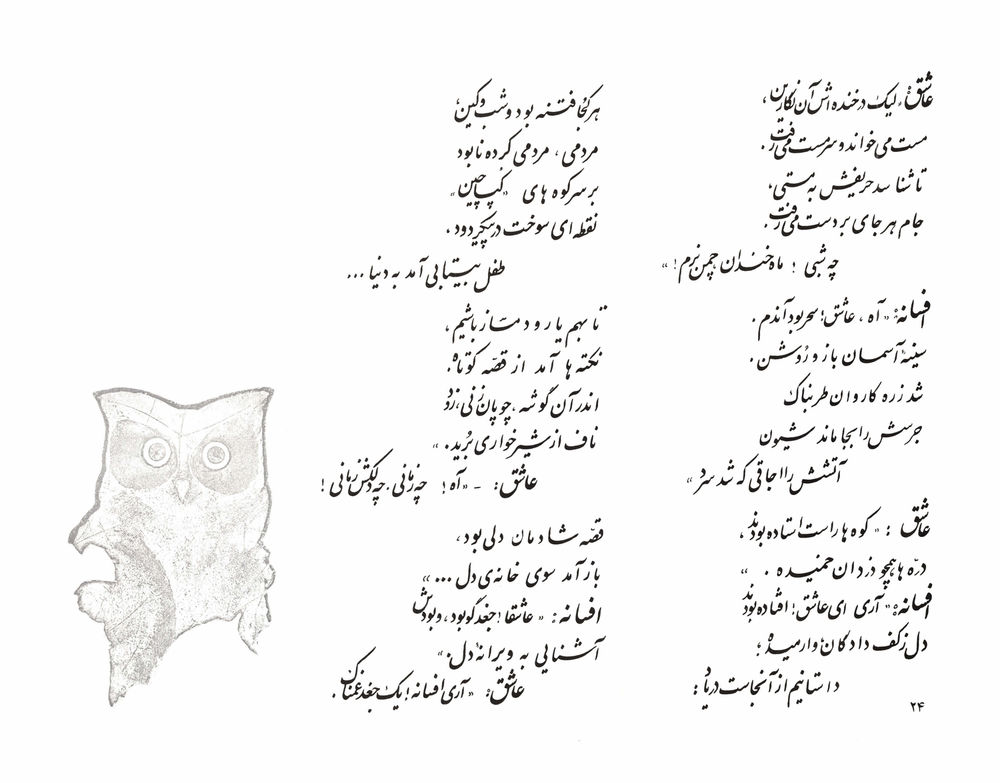 عاشق: «لیک در خنده‌اش آن نگارین،
مست می‌خواند و سرمست می‌رفت.
تا شناسد حریفش به مستی،
جام هر جای بر دست می‌رفت.
چه شبی! ماه خندان، چمن نرم!»
افسانه: «آه، عاشق! سحر بود آندم.
سینهٔ آسمان باز و روشن.
شد ز ره کاروان طربناک
جرسش را بجا ماند شیون
آتشش را اجاقی که شد سرد»
عاشق: «کوه‌ها راست استاده بودند،
دره‌ها همچو دزدان خمیده.»
افسانه: «آری ای عاشق! افتاده بودند
دل ز کف دادگان، وارمیده؛
داستانیم از آنجاست در یاد:
هر کجا فتنه بود و شب و کین،
مردمی، مردمی کرده نابود
بر سر کوه‌های «کپاچین»
نقطه‌ای سوخت در پیکر دود،
طفل بیتابی آمد به دنیا...
تا بهم یار و دمساز باشیم،
نکته‌ها آمد از قصه کوتاه.
اندر آن گوشه، چوپان زنی، زود
ناف از شیرخواری بُرید.»
عاشق: - «آه! چه زمانی، چه دلکش زمانی!
قصهٔ شادمان دلی بود،
باز آمد سوی خانه‌ی دل...»
افسانه: «عاشقا! جغد گو بود، و بودش
آشنایی به ویرانهٔ دل.»
عاشق: «آری افسانه! یک جغد غمناک.
۲۴